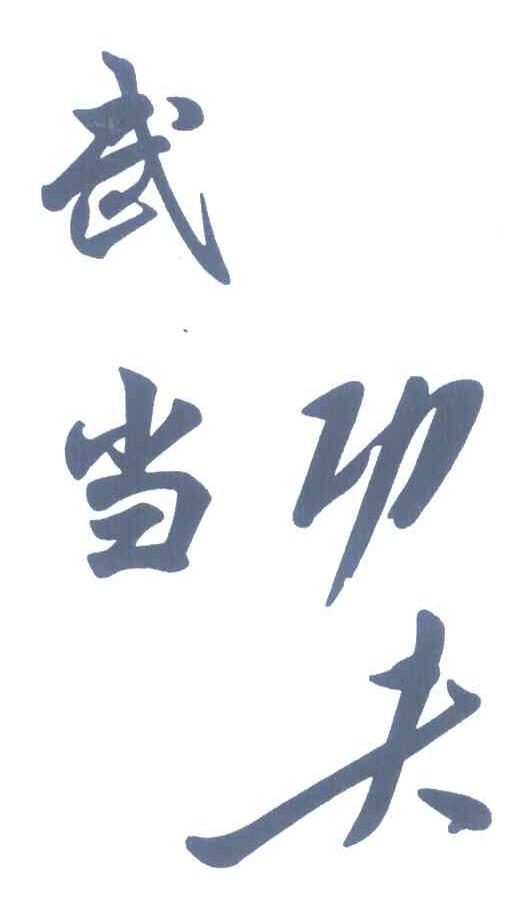 武当
功夫